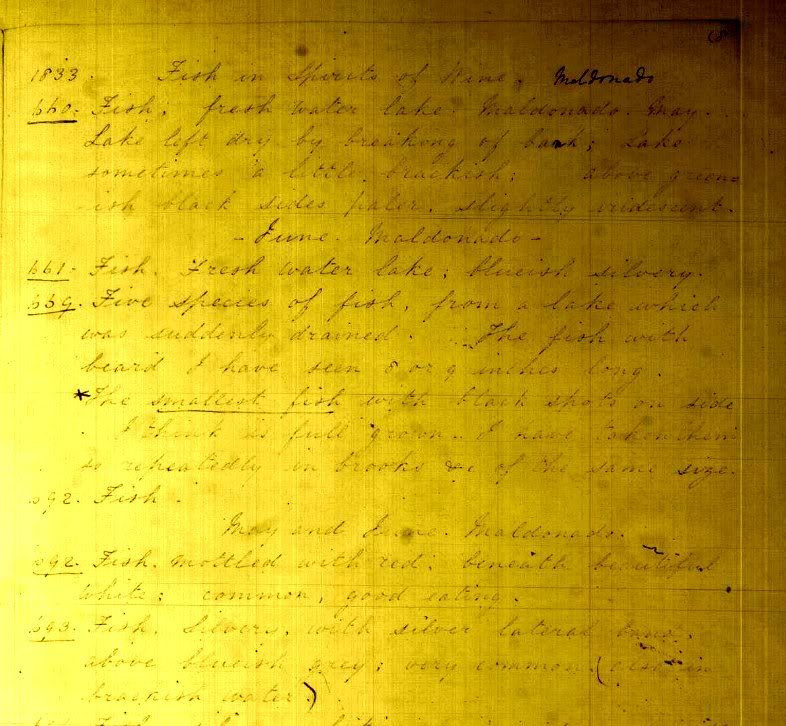 68
1833. Fish in Spirits of Wine. Maldonado
660. Fish; fresh water lake. Maldonado. May.
Lake left dry by breaking of bank; Lake
sometimes a little brackish; above green=
-ish black sides paler, slightly iridescent.
- June. Maldonado -
661. Fish. Fresh water lake; blueish silvery.
Five species of fish, from a lake which
was suddenly drained. The fish with
beard I have seen 8 or 9 inches long.
*The smallest fish with black spots on side
I think is full grown. I have taken them
so repeatedly in brooks &c of the same size.
692. Fish.
May and June. Maldonado.
692. Fish. Mottled with red; beneath beautiful
white; common, good eating.
693. Fish. Silvery, with silver lateral band,
above blueish grey; very common. (also in
brackish water)
Fish